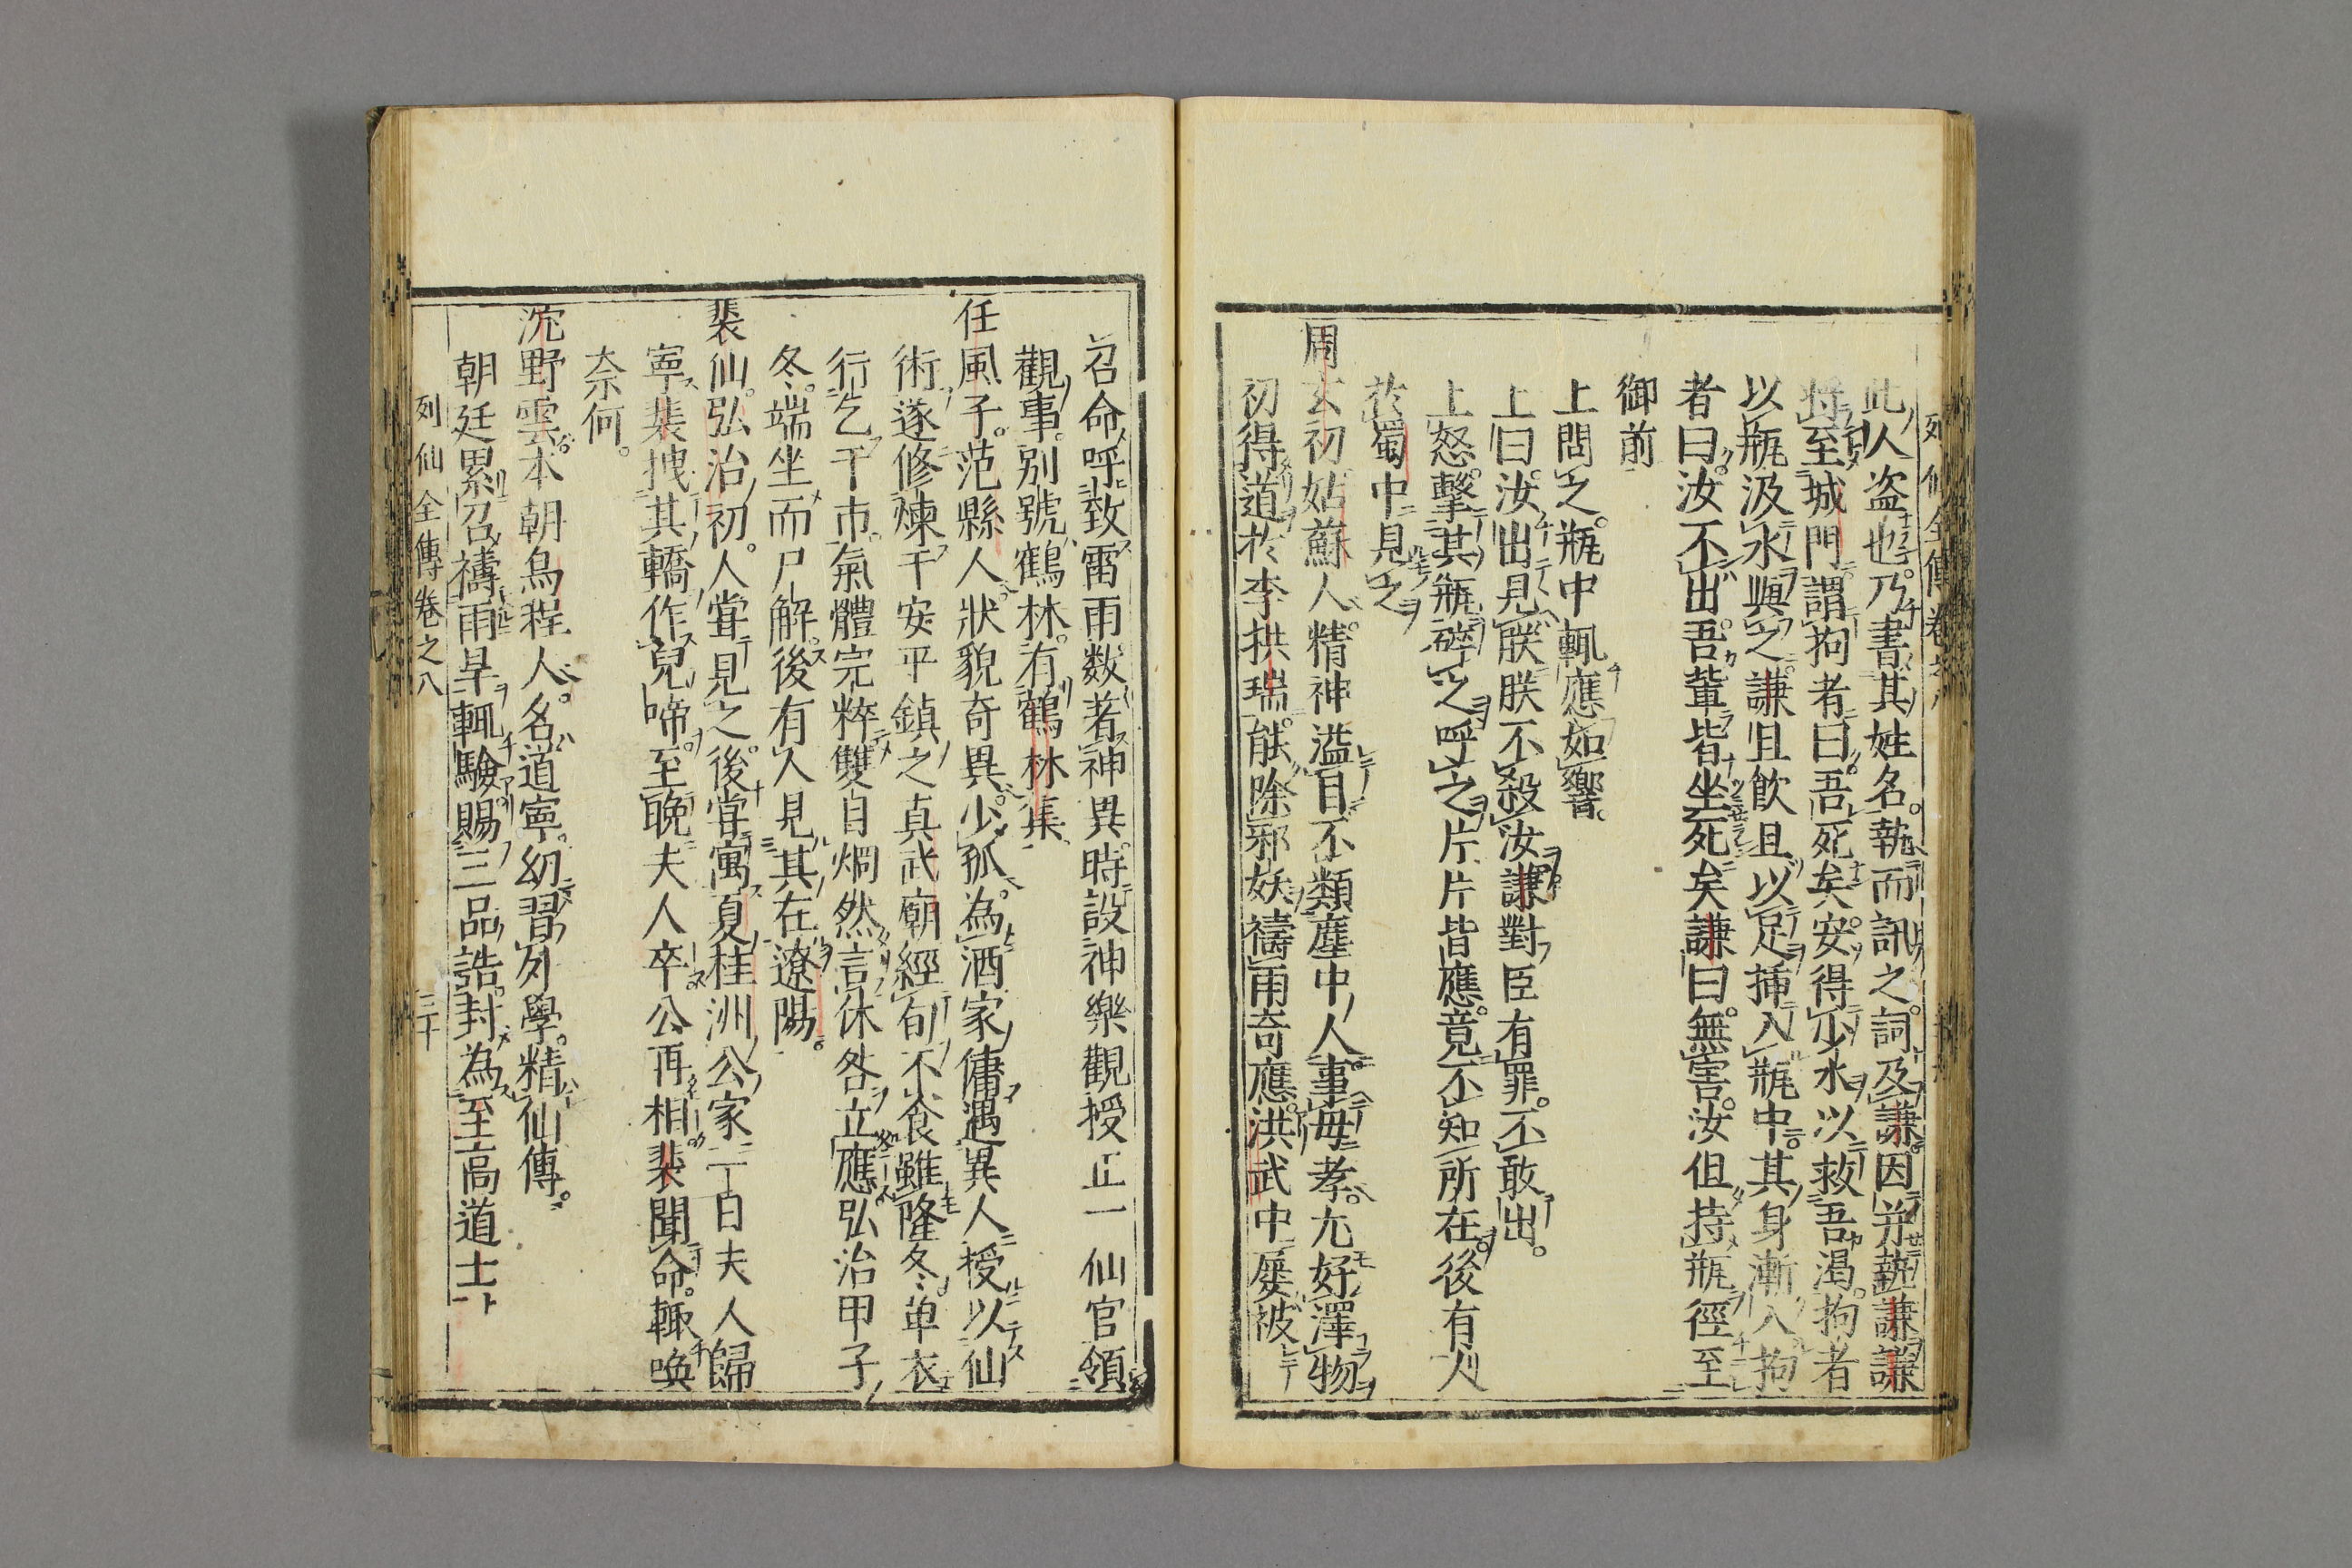 列仙全傳卷之八
此人盗也。乃書其姓名。執而訊之。詞及謙。因并執謙。謙
将至城門。謂拘者曰。吾死矣。安得少水以救吾渴。拘者
以瓶汲水與之。謙且飲且以足挿入瓶中。其身漸入。拘
者曰。汝不出。吾輩皆坐死矣。謙曰。無害。汝但持瓶徑至
御前
上問之。瓶中輒應如響。
上曰。汝出見朕。朕不殺汝。謙對臣有罪。不敢出。
上怒。擊其瓶碎之。呼之片片皆應。竟不知所在。後有人
於蜀中見之
周玄初。姑蘇人。精神溢目。不類塵中人。事毋孝。尤好澤物
初得道於李拱瑞。能除邪妖。禱雨奇應。洪武中屡被
召命。呼致雷雨数著神異。時設神樂觀授正一仙官領
觀事。别號鶴林。有鶴林集
任風子。范縣人。狀貌奇異。少孤。為酒家傭。遇異人授以仙
術。遂修煉于安平鎮之真武廟。經旬不食。雖隆冬單衣
行乞于市。氣體完粹。雙目烱然。言休咎立應。弘治甲子
冬。端坐而尸解。後有人見其在遼陽。
裴仙。弘治初。人甞見之。後甞寓夏桂洲公家。一日夫人歸
寧。裴拽其轎作兒啼。至晚夫人卒。公再相。裴聞命。輒喚
奈何。
沈野雲。本朝烏程人。名道寧。幼習外學。精仙傳。
朝廷累召禱雨旱輒驗。賜三品誥。封為至高道士
列仙全傳卷之八
三十